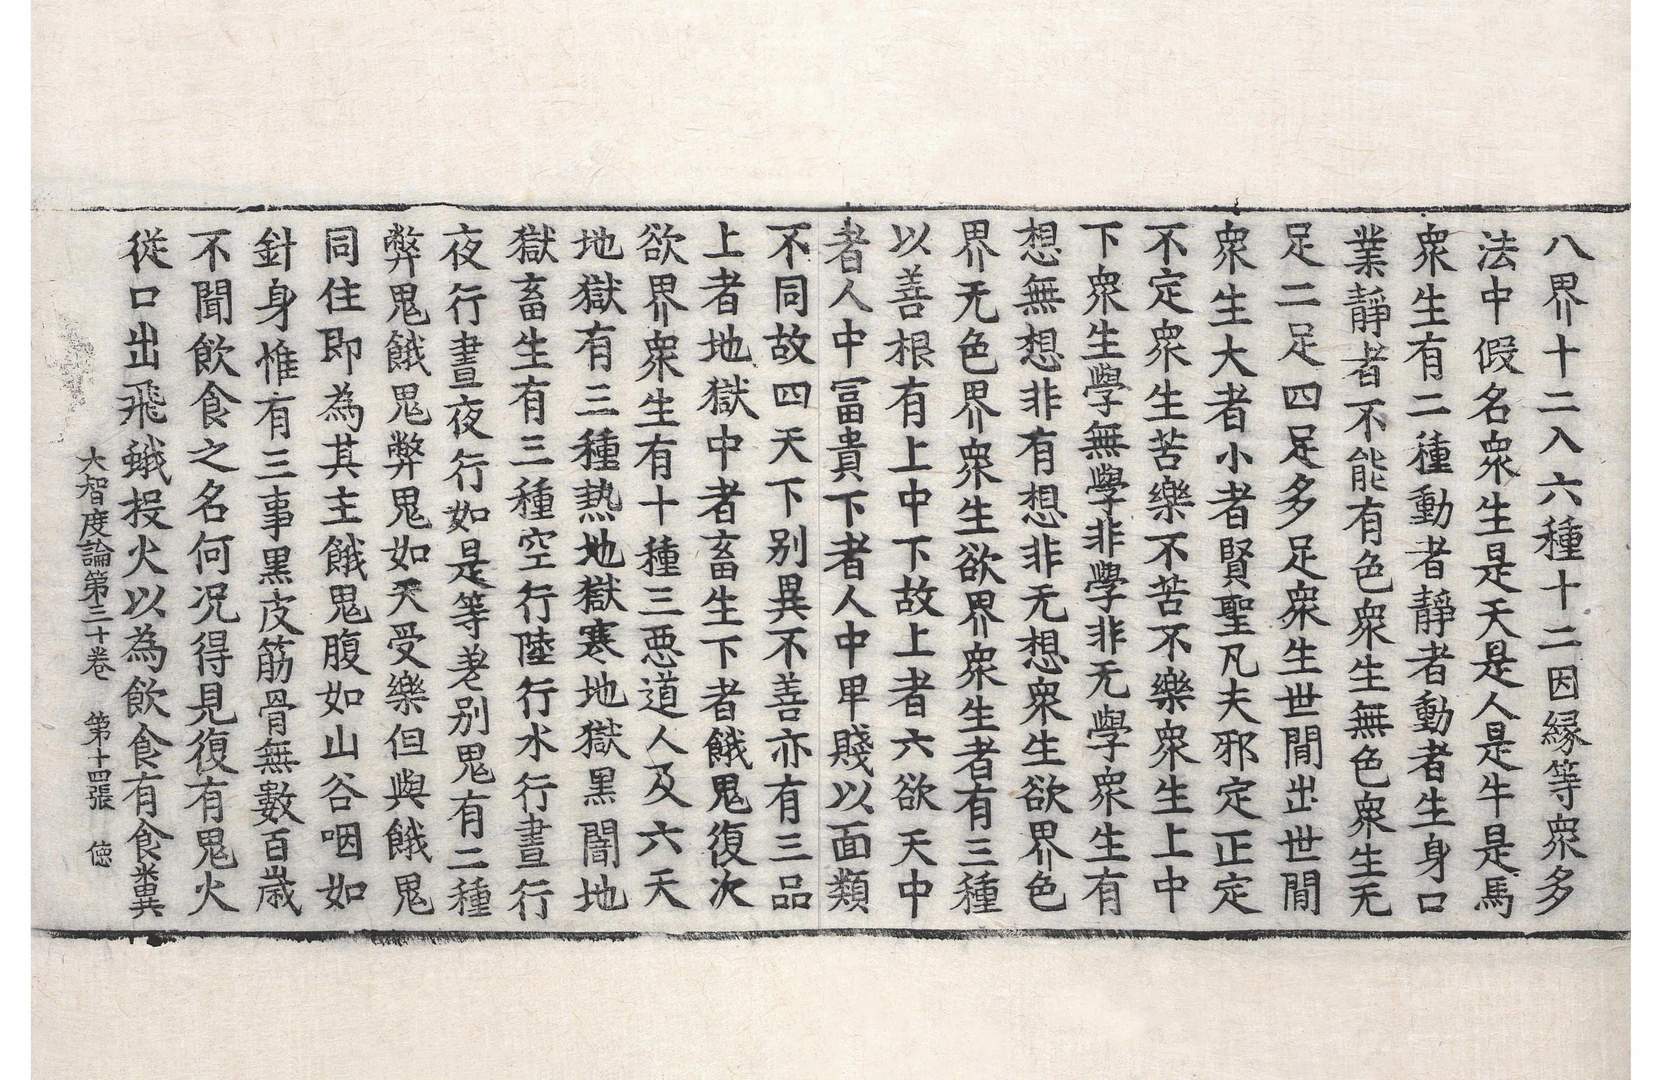 八界十二入六種十二因緣等衆多
法中假名衆生是天是人是牛是馬
衆生有二種動者靜者動者生身口
業靜者不能有色衆生無色衆生无
足二足四足多足衆生世閒出世閒
衆生大者小者賢聖凡夫邪定正定
不定衆生苦樂不苦不樂衆生上中
下衆生學無學非學非无學衆生有
想無想非有想非无想衆生欲界色
界无色界衆生欲界衆生者有三種
以善根有上中下故上者六欲天中
者人中冨貴下者人中卑賤以面類
不同故四天下別異不善亦有三品
上者地獄中者畜生下者餓鬼復次
欲界衆生有十種三惡道人及六天
地獄有三種熱地獄寒地獄黑闇地
獄畜生有三種空行陸行水行晝行
夜行晝夜行如是等差別鬼有二種
弊鬼餓鬼弊鬼如天受樂但與餓鬼
同住即為其主餓鬼腹如山谷咽如
針身惟有三事黑皮筋骨無數百歲
不聞飮食之名何况得見復有鬼火
從口出飛蛾投火以為飮食有食糞
大智度論第三十卷 第十四張 㥁